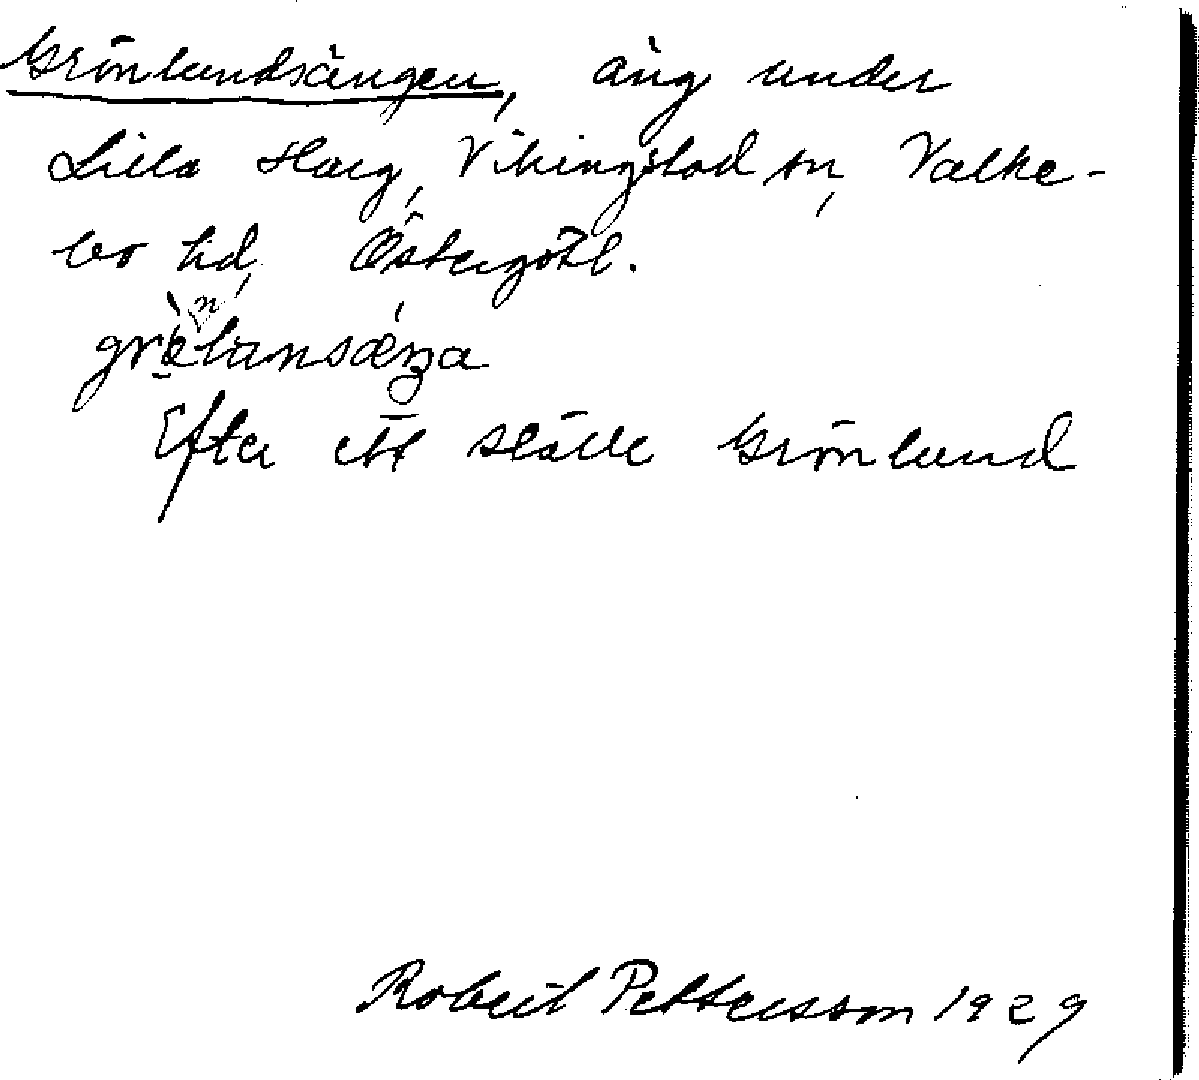 Grönlundsängen, äng under
Lilla Harg, Vikingstad sn, Valke-
bo hd, Östergötl.
Efter ett ställe Grönlund
Robert Pettersson 1929